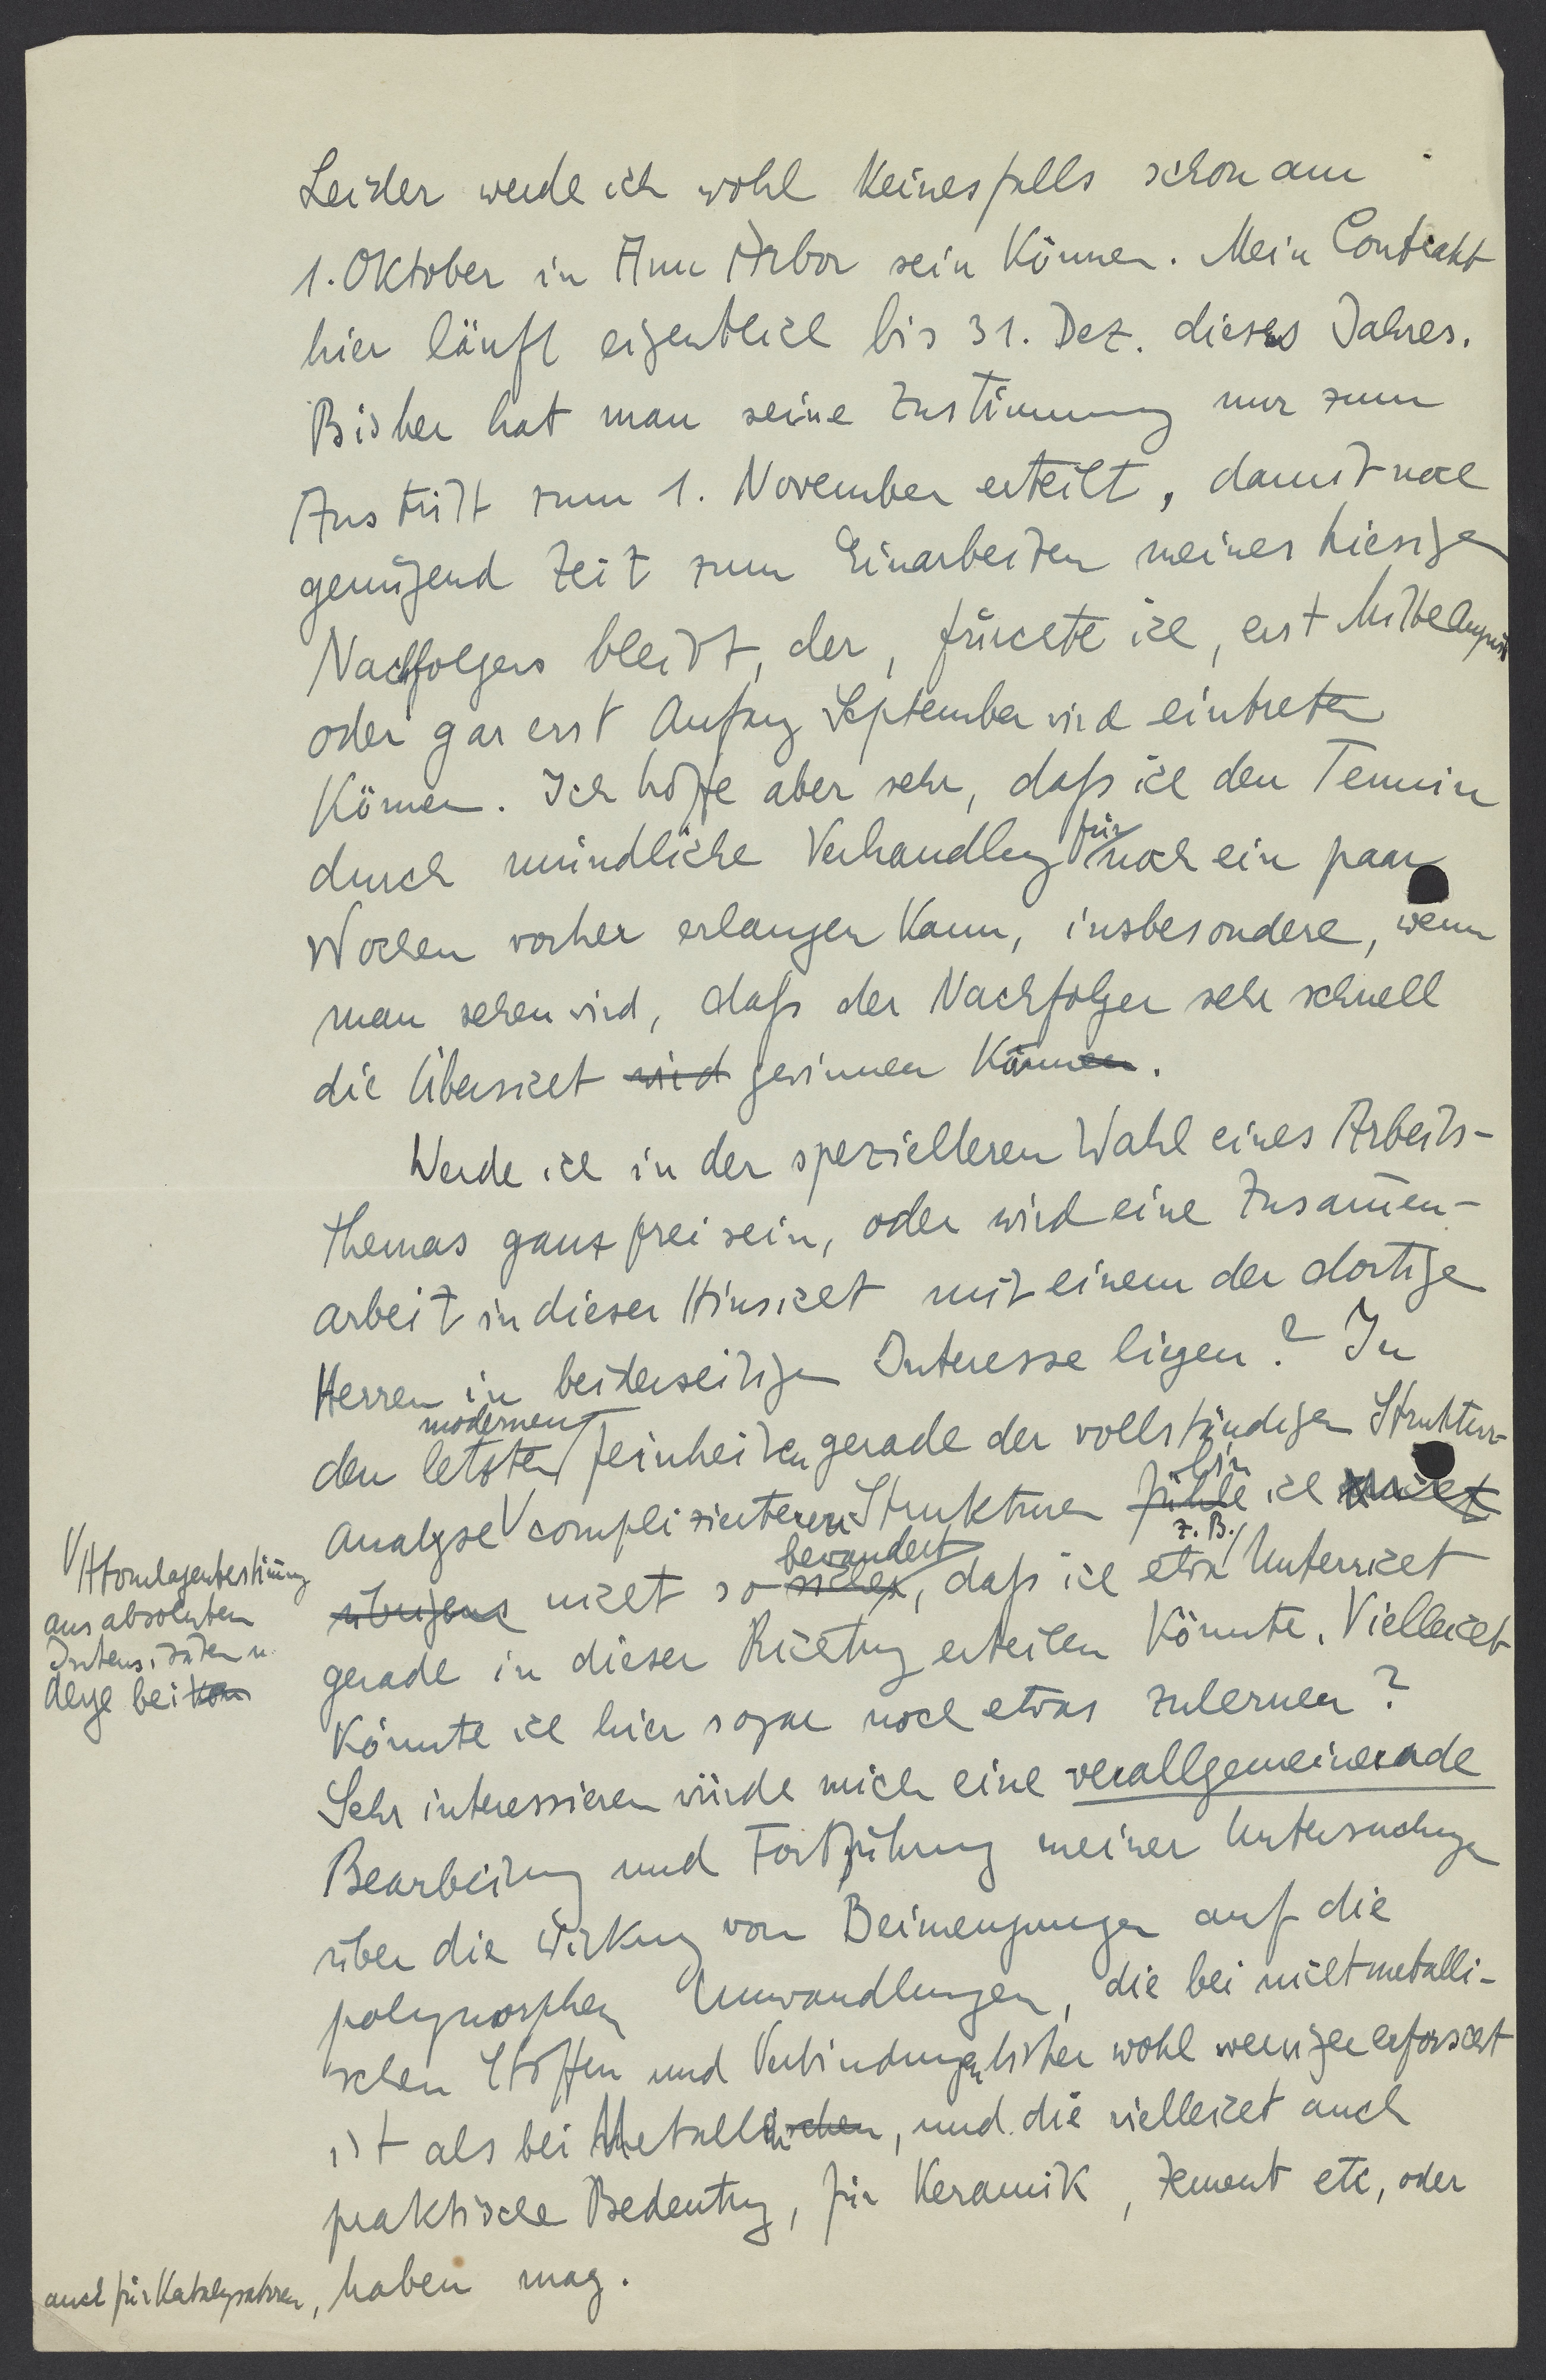 Leider werde ich wohl keinesfalls schon am
1. Oktober in Ann Arbor sein können. Mein Contrakt
hier läuft eigentlich bis 31. Dez. dieses Jahres.
Bisher hat man seine Zustimmung nur zum
Austritt zum 1. November erteilt, damit noch
genügend Zeit zum Einarbeiten meines hiesigen
Nachfolgers bleibt, der, fürchte ich, erst Mitte August
oder gar erst Anfang September wird eintreten
können. Ich hoffe aber sehr, daß ich den Termin
für
durch mündliche Verhandlung noch ein paar
Wochen vorher erlangen kann, insbesondere, wenn
man sehen wird, daß der Nachfolger sehr schnell
die Übersicht wird gewinnen können.
Werde ich in der spezielleren Wahl eines Arbeits-
themas ganz frei sein, oder wird eine Zusam̄en-
arbeit in dieser Hinsicht mit einem der dortigen
Herren in beiderseitigen Interesse liegen? In
modernen
den letzten Feinheiten gerade der vollständigen Struktur-
bin
analyse complizierteren Strukturen fühle ich nicht
bewandert z. B.
übrigens nicht so sicher, daß ich etwa Unterricht
Atomlagenbestim̄ung
aus absoluten
Intensitäten u.
derge bei von
gerade in dieser Richtung erteilen könnte. Vielleicht
könnte ich hier sogar noch etwas zulernen?
Sehr interessieren würde mich eine verallgemeinernde
Bearbeitung und Fortführung meiner Untersuchungen
über die Wirkung von Beimengungen auf die
polymorphen Umwandlungen, die bei nichtmetalli-
schen Stoffen und Verbindungen bisher wohl weniger erforscht
ist als bei Metallischen, und die vielleicht auch
praktische Bedeutung, für Keramik, Zement etc, oder
auch für Katalysatoren, haben mag.